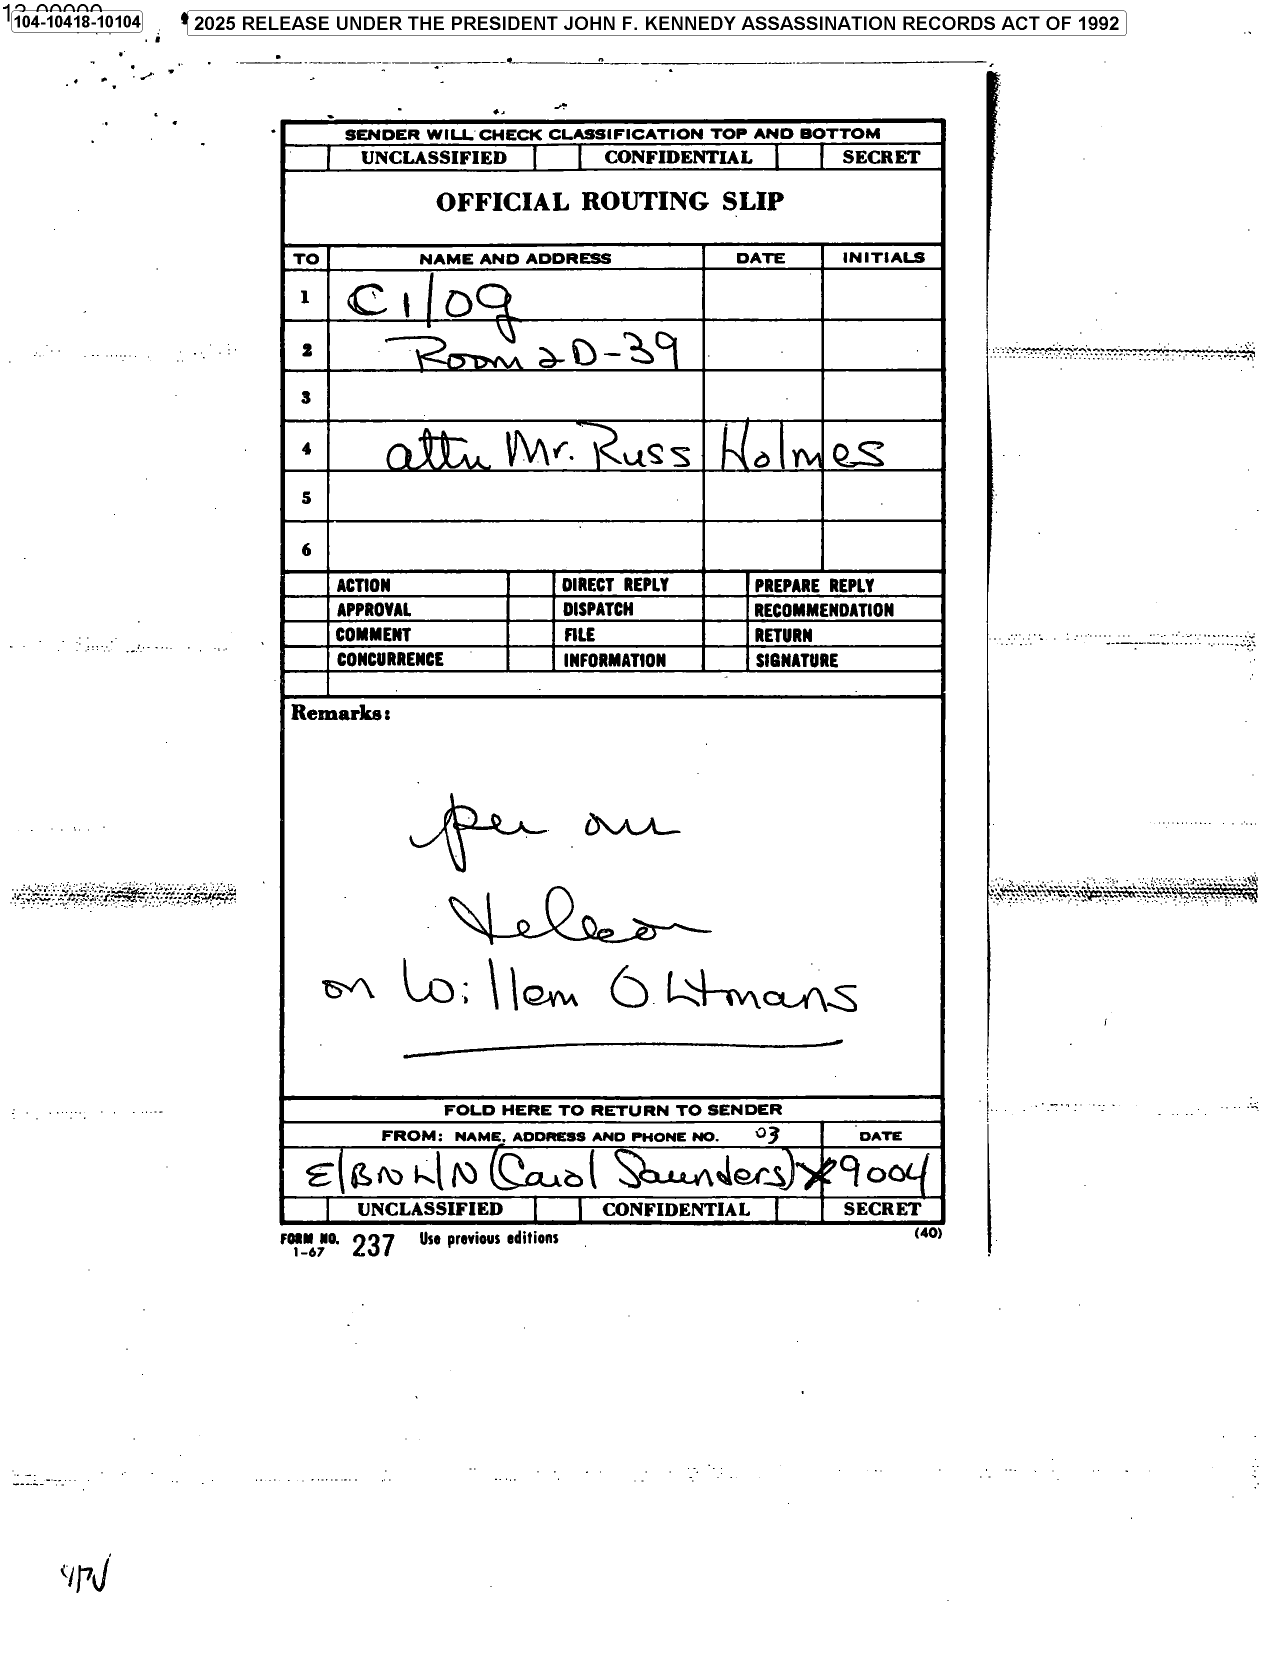 104-10418-10104
2025 RELEASE UNDER THE PRESIDENT JOHN F. KENNEDY ASSASSINATION RECORDS ACT OF 1992
SENDER WILL CHECK CLASSIFICATION TOP AND BOTTOM
UNCLASSIFIED CONFIDENTIAL SECRET
OFFICIAL ROUTING SLIP
TO NAME AND ADDRESS DATE INITIALS
1 CI/og
2 Room 2D-39
3
4 attn Mr. Russ Holmes
5
6
ACTION DIRECT REPLY PREPARE REPLY
APPROVAL DISPATCH RECOMMENDATION
COMMENT FILE RETURN
CONCURRENCE INFORMATION SIGNATURE
Remarks:
per our
telecon
on Willem Oltmans
FOLD HERE TO RETURN TO SENDER
FROM: NAME, ADDRESS AND PHONE NO. 03 DATE
E/BNL/N (Carol Saunders) x9004
UNCLASSIFIED CONFIDENTIAL SECRET
FORM NO. 237 Use previous editions (40)
1-67